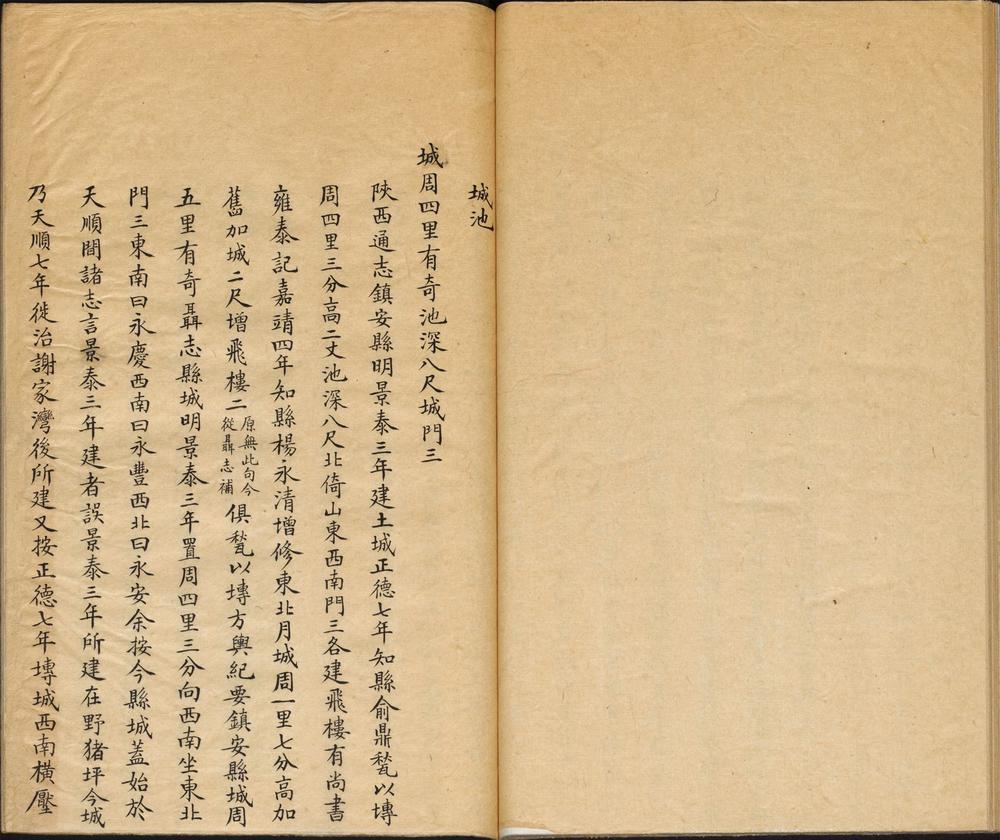 城池
城周四里有奇池深八尺城門三
陝西通志鎮安縣明景泰三年建土城正德七年知縣俞鼎甃以塼
周四里三分高二丈池深八尺北倚山東西南門三各建飛樓有尚書
雍泰記嘉靖四年知縣楊永清增修東北月城周一里七分高加
舊加城二尺增飛樓二原無此句今從聶志補俱甃以塼方輿紀要鎮安縣城周
五里有奇聶志縣城明景泰三年置周四里三分向西南坐東北
門三東南曰永慶西南曰永豐西北曰永安余按今縣城蓋始於
天順間諸志言景泰三年建者誤景泰三年所建在野猪坪今城
乃天順七年徙治謝家灣後所建又按正德七年塼城西南橫壓